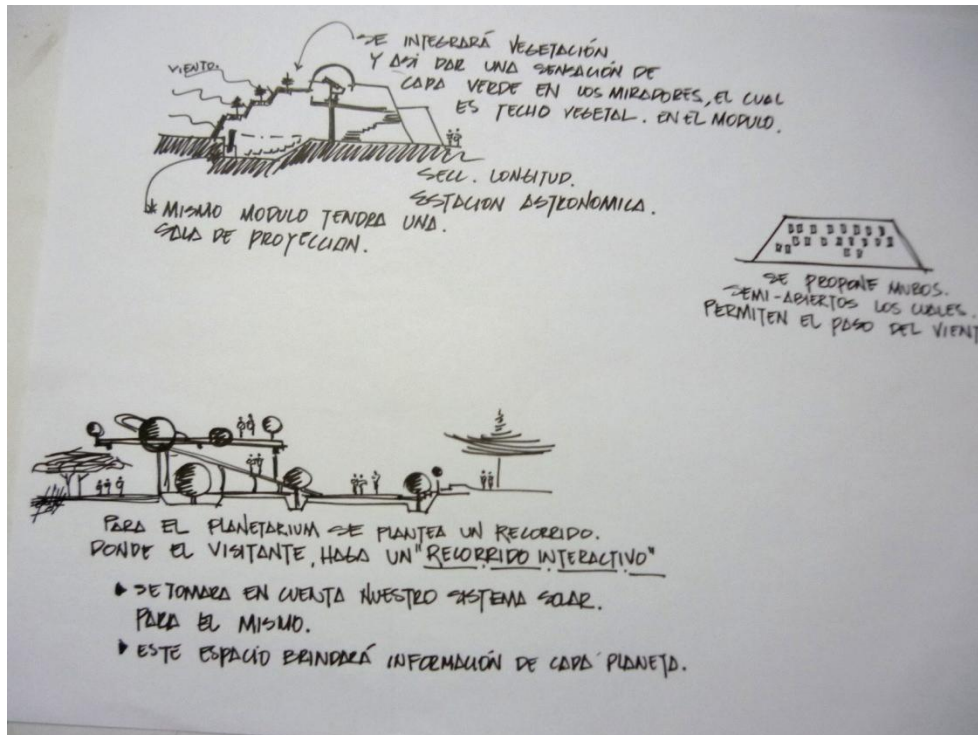 SE INTEGRARÁ VEGETACIÓN
Y ASI DAR UNA SENSACIÓN DE
CAPA VERDE EN LOS MIRADORES, EL CUAL
ES TECHO VEGETAL. EN EL MODULO.
VIENTO.
SECC. LONGITUD.
ESTACION ASTRONOMICA.
* MISMO MODULO TENDRA UNA.
SALA DE PROYECCION.
SE PROPONE MUROS.
SEMI-ABIERTOS LOS CUALES.
PERMITEN EL PASO DEL VIENT
PARA EL PLANETARIUM SE PLANTEA UN RECORRIDO.
DONDE EL VISITANTE, HAGA UN "RECORRIDO INTERACTIVO"
▶ SE TOMARA EN CUENTA NUESTRO SISTEMA SOLAR.
PARA EL MISMO.
▶ ESTE ESPACIO BRINDARÁ INFORMACIÓN DE CADA PLANETA.